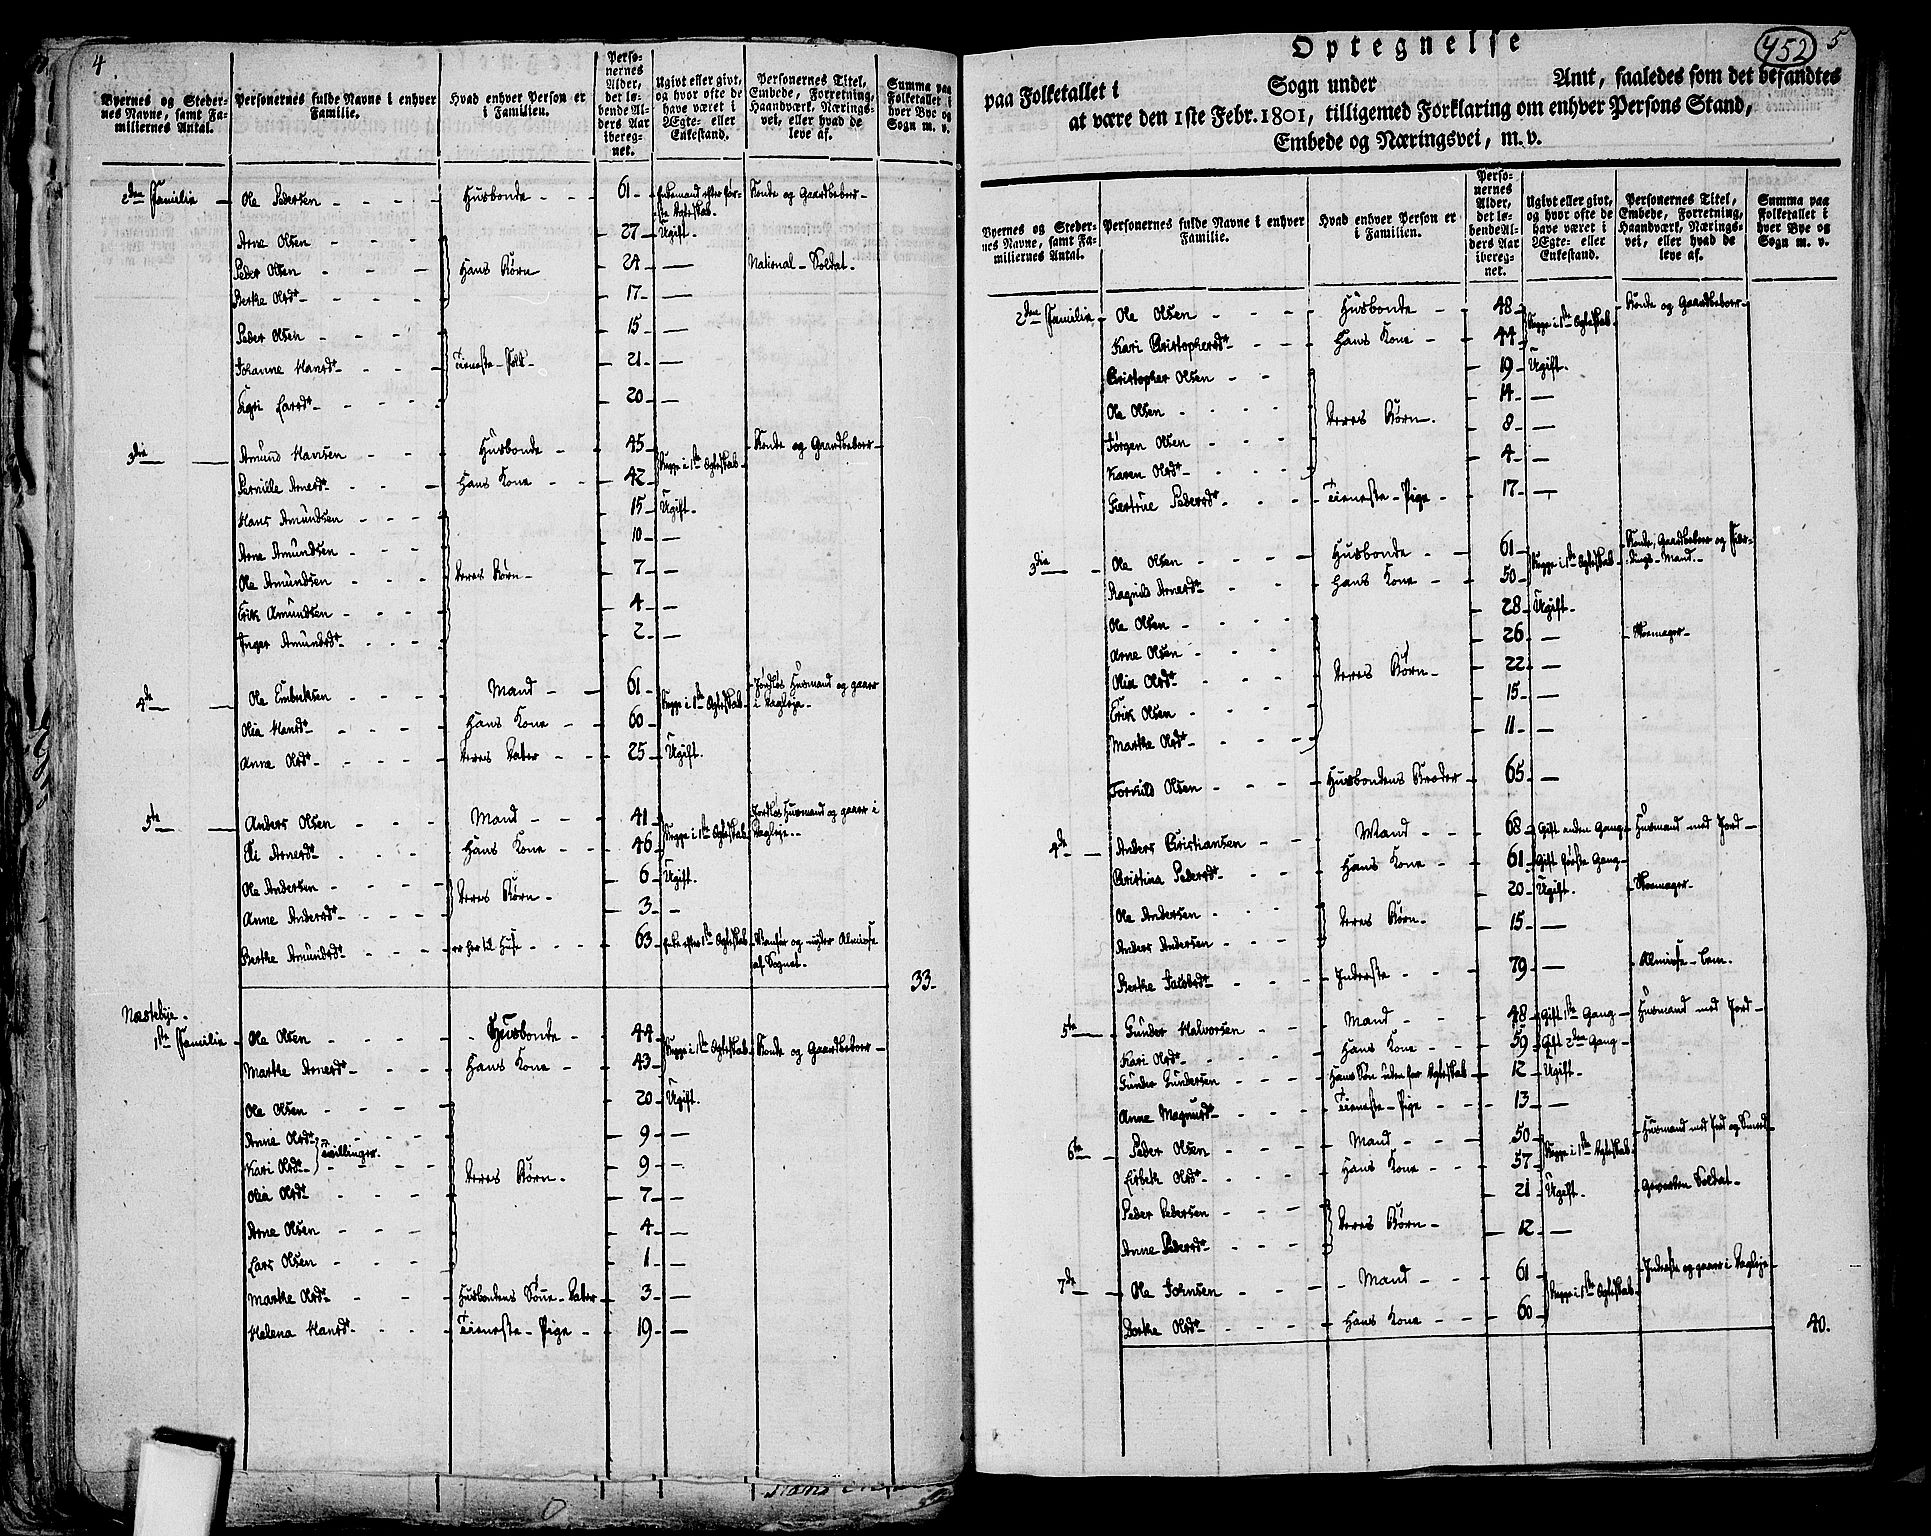 4
Byernes og Steder-
nes Navne, samt Fa-
miliernes Antal.
Personernes fulde Navne i enhver
Familie.
Hvad enhver Person er
i Familien.
Perso-
nernes
Alder,
det lø-
bende Al-
ders Aar
ibereg-
net.
Ugivt eller givt,
og hvor ofte de
have været i
Ægte- eller
Enkestand.
Personernes Titel,
Embede, Forretning,
Haandværk, Nærings-
vei, eller hvad de
leve af.
Summa paa
Folketallet i
hver Bye og
Sogn m. v.
2den Familie Ole Pedersen Husbonde 61 Enkemand efter før- Bonde og Gaardbeboer
ste Ægteskab.
Arne Olsen 27 Ugift.
Peder Olsen Hans Børn 24 — National-Soldat.
Berthe Olsdr 17 —
Peder Olsen 15 —
Johanne Hansdr Tieneste-Folk 21 —
Sigri Larsdr 20 —
3die Amund Hansen Husbonde 45 Begge i 1ste Ægteskab Bonde og Gaardbeboer
Pernille Arnesdr Hans Kone 42
Hans Amundsen 15 Ugift.
Arne Amundsen 10 —
Ole Amundsen Deres Børn 7 —
Erik Amundsen 4 —
Inger Amundsdr 2 —
4de Ole Embriksen Mand 61 Begge i 1ste Ægteskab Jordløs Husmand og gaaer
i Dagleje.
Olia Hansdr Hans Kone 60
Anne Olsdr Deres Datter 25 Ugift.
5te Anders Olsen Mand 41 Begge i 1ste Ægteskab Jordløs Husmand og gaaer i
Dagleje.
Eli Arnesdr Hans Kone 46
Ole Andersen Deres Børn 6 Ugift.
Anne Andersdr 3 —
Berthe Amundsdr er her til Huse 63 Enke efter 1ste Ægteskab Vanfør og nyder Almisse
af Sognet.
33
Næstebye.
1ste Familie Ole Olsen Husbonde 44 Begge i 1ste Ægteskab Bonde og Gaardbeboer
Marthe Arnesdr Hans Kone 43
Ole Olsen 20 Ugift.
Anne Olsdr Tvillinger. 9 —
Kari Olsdr 9 —
Olia Olsdr Deres Børn. 7 —
Arne Olsen 4 —
Lars Olsen 1 —
Marthe Olsdr Husbondens Sønne-Datter 3 —
Helena Hansdr Tieneste-Pige 19 —
Optegnelse
452
5
paa Folketallet i Sogn under Amt, saaledes som det befandtes
at være den 1ste Febr. 1801, tilligemed Forklaring om enhver Persons Stand,
Embede og Næringsvei, m. v.
Byernes og Steder-
nes Navne, samt Fa-
miliernes Antal.
Personernes fulde Navne i enhver
Familie.
Hvad enhver Person er
i Familien.
Perso-
nernes
Alder,
det lø-
bende Al-
ders Aar
ibereg-
net.
Ugivt eller givt,
og hvor ofte de
have været i
Ægte- eller
Enkestand.
Personernes Titel,
Embede, Forretning,
Haandværk, Nærings-
vei, eller hvad de
leve af.
Summa paa
Folketallet i
hver Bye og
Sogn m. v.
2den Familie Ole Olsen Husbonde 48 Begge i 1ste Ægteskab Bonde og Gaardbeboer
Kari Christophersdr Hans Kone 44
Christopher Olsen 19 Ugift.
Ole Olsen Deres Børn. 14 —
Jørgen Olsen 8 —
Karen Olsdr 4 —
Giertrue Pedersdr Tieneste-Pige 17 —
3die Ole Olsen Husbonde 61 Begge i 1ste Ægteskab Bonde, Gaardbeboer og Fier-
dings-Mand.
Ragnild Arnesdr Hans Kone 50
Ole Olsen 28 Ugift.
Arne Olsen 26 — Skomager
Olia Olsdr Deres Børn 22 —
Erik Olsen 15 —
Marthe Olsdr 11 —
Torkild Olsen Husbondens Broder 65 —
4de Anders Christiansen Mand 68 Gift anden Gang Husmand med Jord
Christina Pedersdr Hans Kone 61 Gift første Gang
Ole Andersen Deres Børn 20 Ugift. Skomager
Anders Andersen 15 —
Berthe Jacobsdr Inderste 79 — Almisse-Lem.
5te Gunder Halvorsen Mand 48 Gift 1ste Gang Husmand med Jord
Kari Olsdr Hans Kone 59 Gift 2den Gang
Gunder Gundersen Hans Søn uden for Ægteskab 12 Ugift
Anne Magnusdr Tieneste-Pige 13 —
6te Peder Olsen Mand 50 Begge i 1ste Ægteskab Husmand med Jord og Smed
Lisbeth Olsdr Hans Kone 57
Peder Pedersen Deres Børn 21 Ugift. Geworben Soldat
Anne Pedersdr 12 —
7de Ole Johnsen Mand 61 Begge i 1ste Ægteskab Inderste og gaaer i Dagleje
Dorthe Olsdr Hans Kone 60
40.